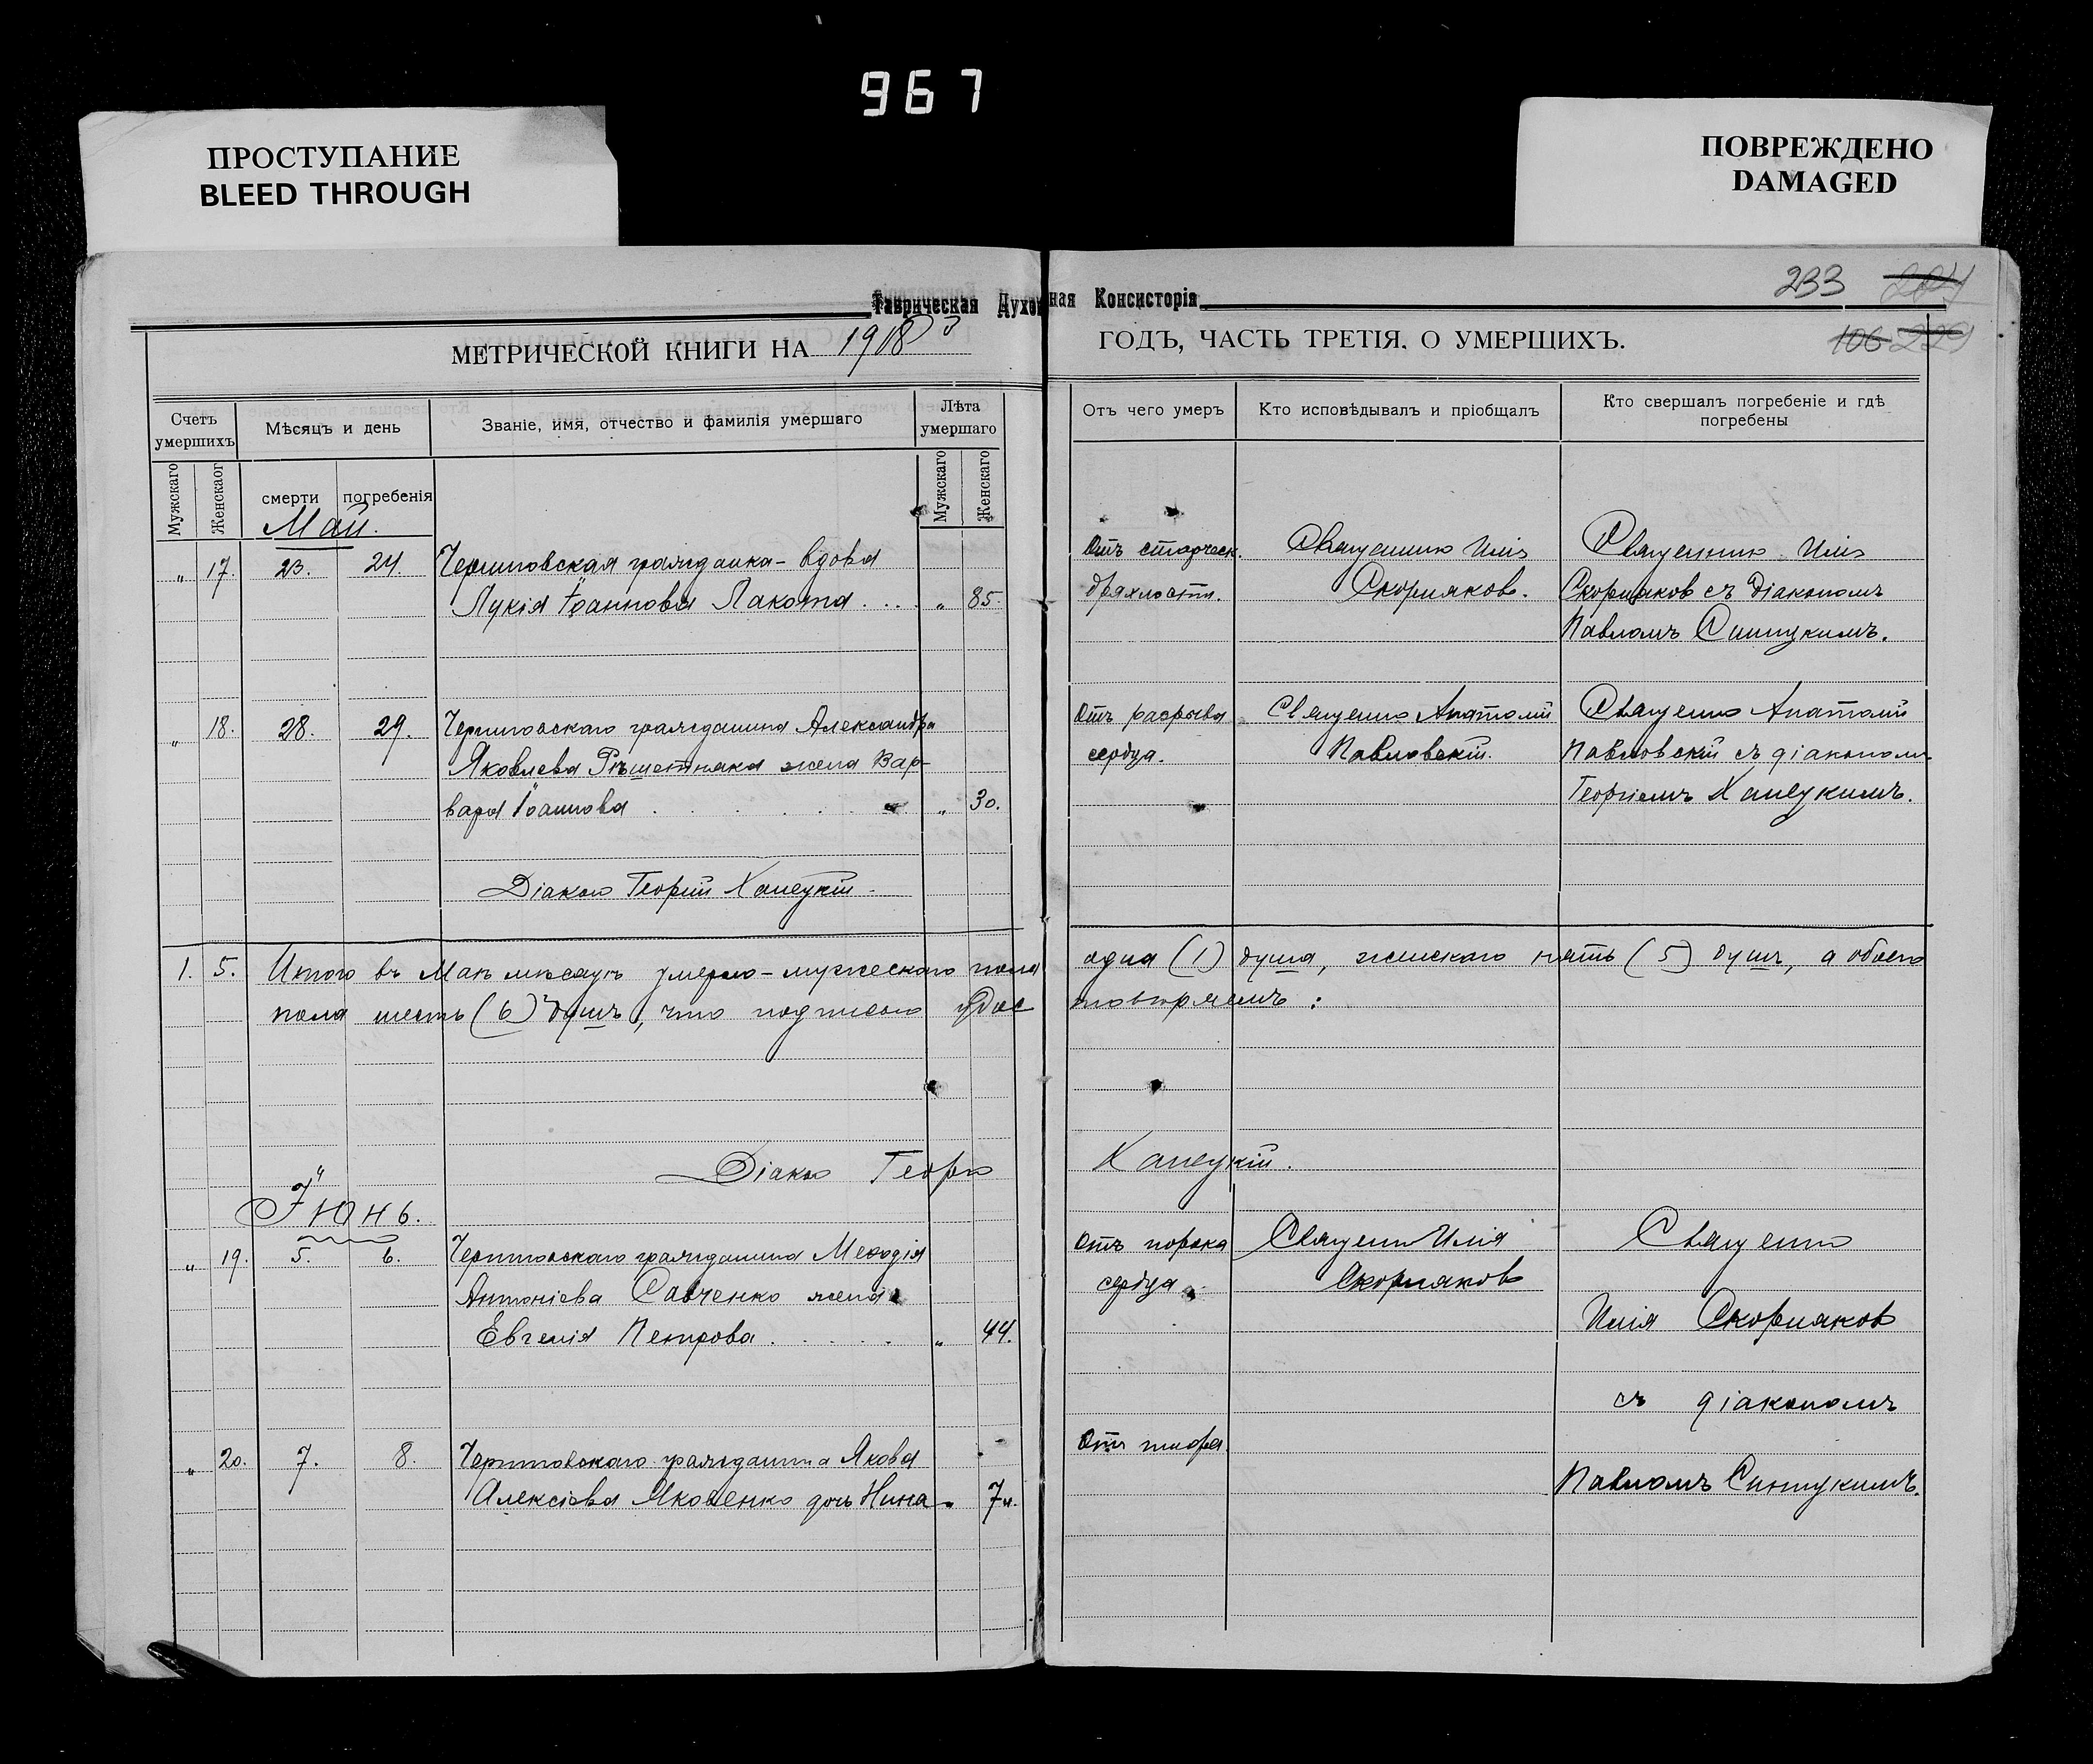 967
ПРОСТУПАНИЕ
BLEED THROUGH
ПОВРЕЖДЕНО
DAMAGED
Таврическая Духовная Консисторія
233
106 229
МЕТРИЧЕСКОЙ КНИГИ НА 1918 ГОДЪ, ЧАСТЬ ТРЕТІЯ. О УМЕРШИХЪ.
Счетъ умершихъ
Мѣсяцъ и день
Званіе, имя, отчество и фамилія умершаго
Лѣта умершаго
Отъ чего умеръ
Кто исповѣдывалъ и пріобщалъ
Кто свершалъ погребеніе и гдѣ погребены
Мужскаго
Женскаог
смерти
погребенія
Мужскаго
Женскаго
Май.
" 17. 23. 24. гражданка - вдова
Лукія Іоаннова Лакота . . . . " 85.
Отъ старческ.
дряхлости.
Священник Илія
Скорняков.
Священник Илія
Скорняков съ діакономъ
Павломъ
" 18. 28. 29. гражданина Александра
Яковлева Рѣшетняка жена Вар-
вара Іоаннова . . . . . . " 30.
Отъ разрыва
сердца.
Священ Анатолій
Павловскій.
Священ Анатолій
Павловскій съ діакономъ
Георгіемъ Ханецкимъ.
Діакон Георгій Ханецкій
1. 5. Итого въ Маѣ мѣсяцѣ умерло - мужескаго пола одна (1) душа, женскаго пять (5) душъ, а обоего
пола шесть (6) душъ, что подписью удос товѣряемъ :
Діакон Георгій Ханецкій.
Іюнь.
" 19. 5. 6. гражданина Меѳодія
Антоніева Савченко жена
Евгенія Петрова . . . . . " 44.
Отъ порока
сердца
Священ Илія
Скорняков
Священ
Илія Скорняков
съ діакономъ
Павломъ
" 20. 7. 8. гражданина Якова
Алексіева Яковенко дочь Нина " 7 м.
Отъ тифа.